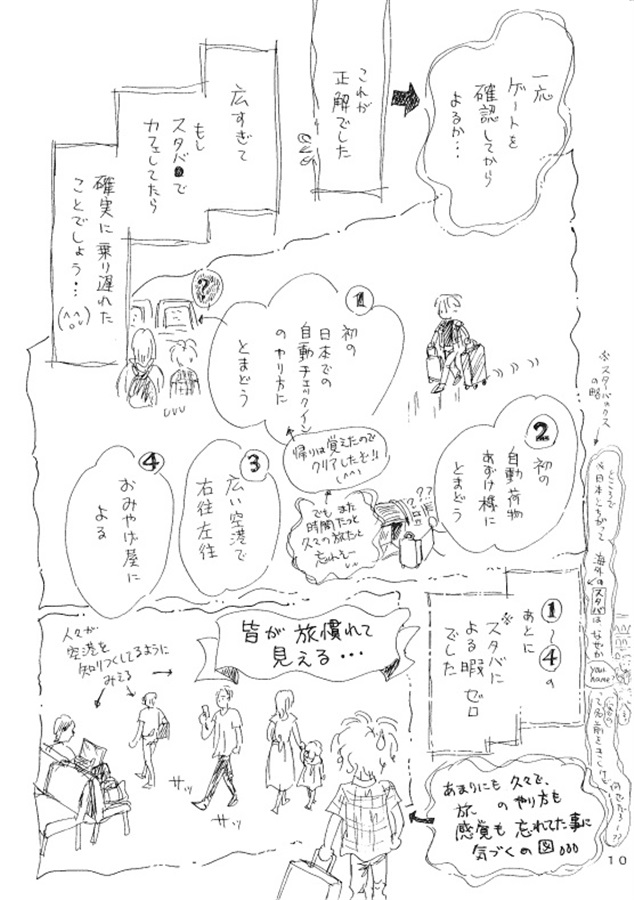 一応
ゲートを
確認してから
よるか・・・
これが
正解でした
広すぎて
もし
スタバで
カフェしてたら
確実に乗り遅れた
ことでしょう・・・
?
①
初の
日本での
自動チェックイン
のやり方に
とまどう
帰りは覚えたので
クリアしたぞ!!
(^^)
②
初の
自動荷物
あずけ機に
とまどう
???
でもまた
時間たつと
久々の旅だと
忘れそー
③
広い空港で
右往左往
④
おみやげ屋に
よる
①〜④の
あとに
※スタバに
よる暇ゼロ
でした
※スタバックス
の略
ところで
日本とちがって
海外のスタバは なぜか
your
name?
皆が旅慣れて
見える・・・
人々が
空港を
知りつくしてるように
みえる
サッ
サッ
あまりにも久々で、
旅のやり方も
感覚も忘れてた事に
気づくの図。。。
10